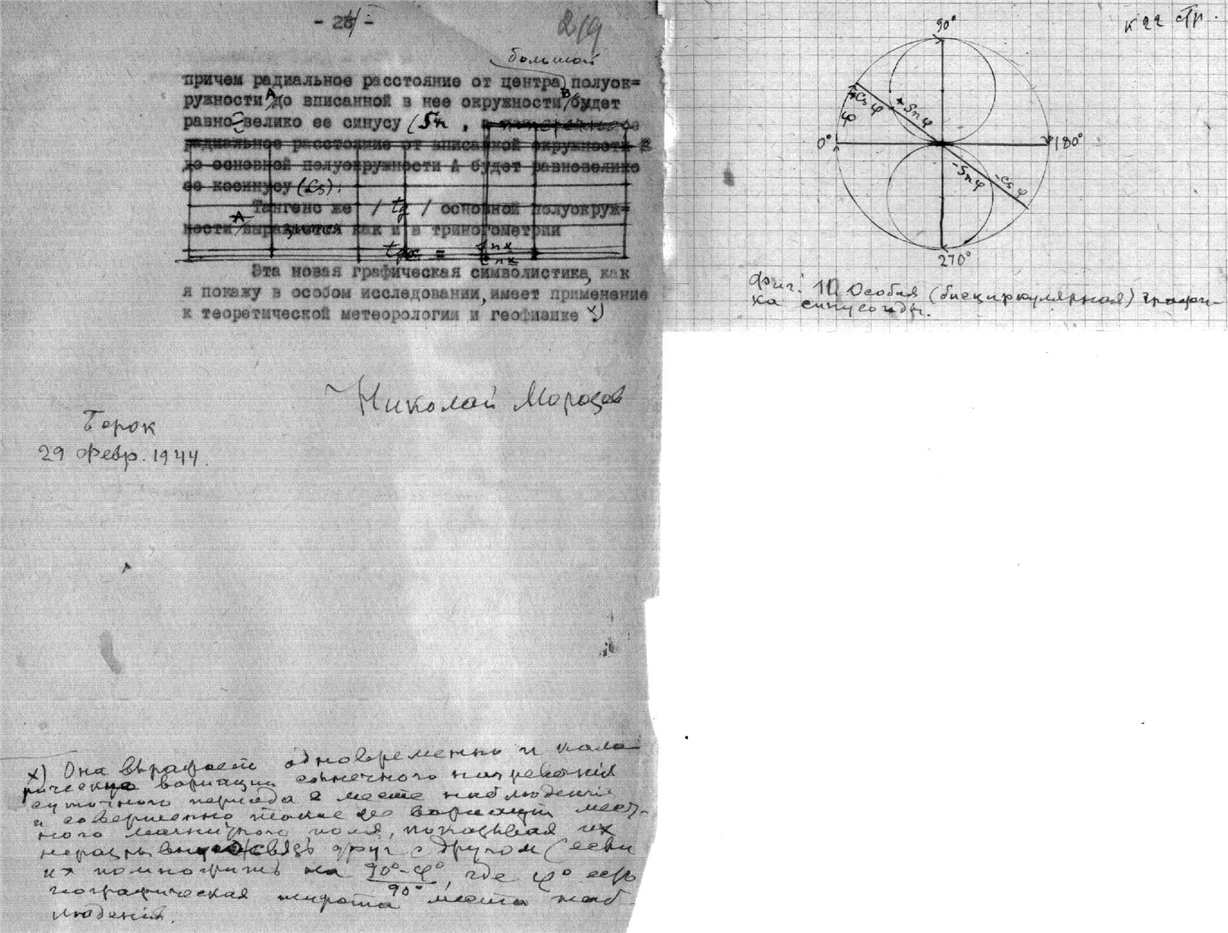 - 24 -
219
большой
причем радиальное расстояние от центра полуок=
ружности А до вписанной в нее окружности В будет
равно велико ее синусу (Sn ,
радиальное расстояние от вписанной окружности В
до основной полуокружности А будет равновелико
ее косинусу (Cs).
Тангенс же / tg / основной полуокруж=
ности А выразится как и в тригогометрии
Эта новая графическая символистика, как
я покажу в особом исследовании, имеет применение
к теоретической метеорологии и геофизике х)
Николай Морозов
Борок
29 февр. 1944.
х) Она выражает одновременно и кало
рические вариации солнечного нагревания
суточного периода в месте наблюдения
и совершенно такие же вариации мест-
ного магнитного поля, показывая их
неразрывную связь друг с другом (если
их помножить на 90°-φ°/90°, где φ° есть
географическая широта места наб
людения.
к 22 стр.
90°
+Cs φ
+Sn φ
φ
0°
180°
-Sn φ
-Cs φ
270°
Фиг. 10 Особая (бициркулярная) графи-
ка синусоиды.